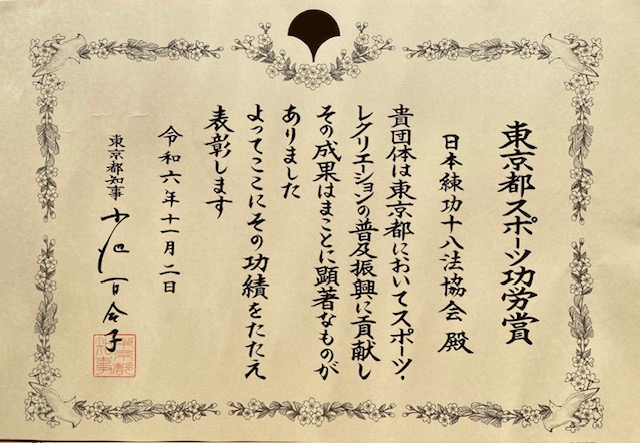 東京都スポーツ功労賞
日本練功十八法協会 殿
貴団体は東京都においてスポーツ・
レクリエーションの普及振興に貢献し
その成果はまことに顕著なものが
ありました
よってここにその功績をたたえ
表彰します
令和六年十一月二日
東京都知事 小池百合子
東京都知事